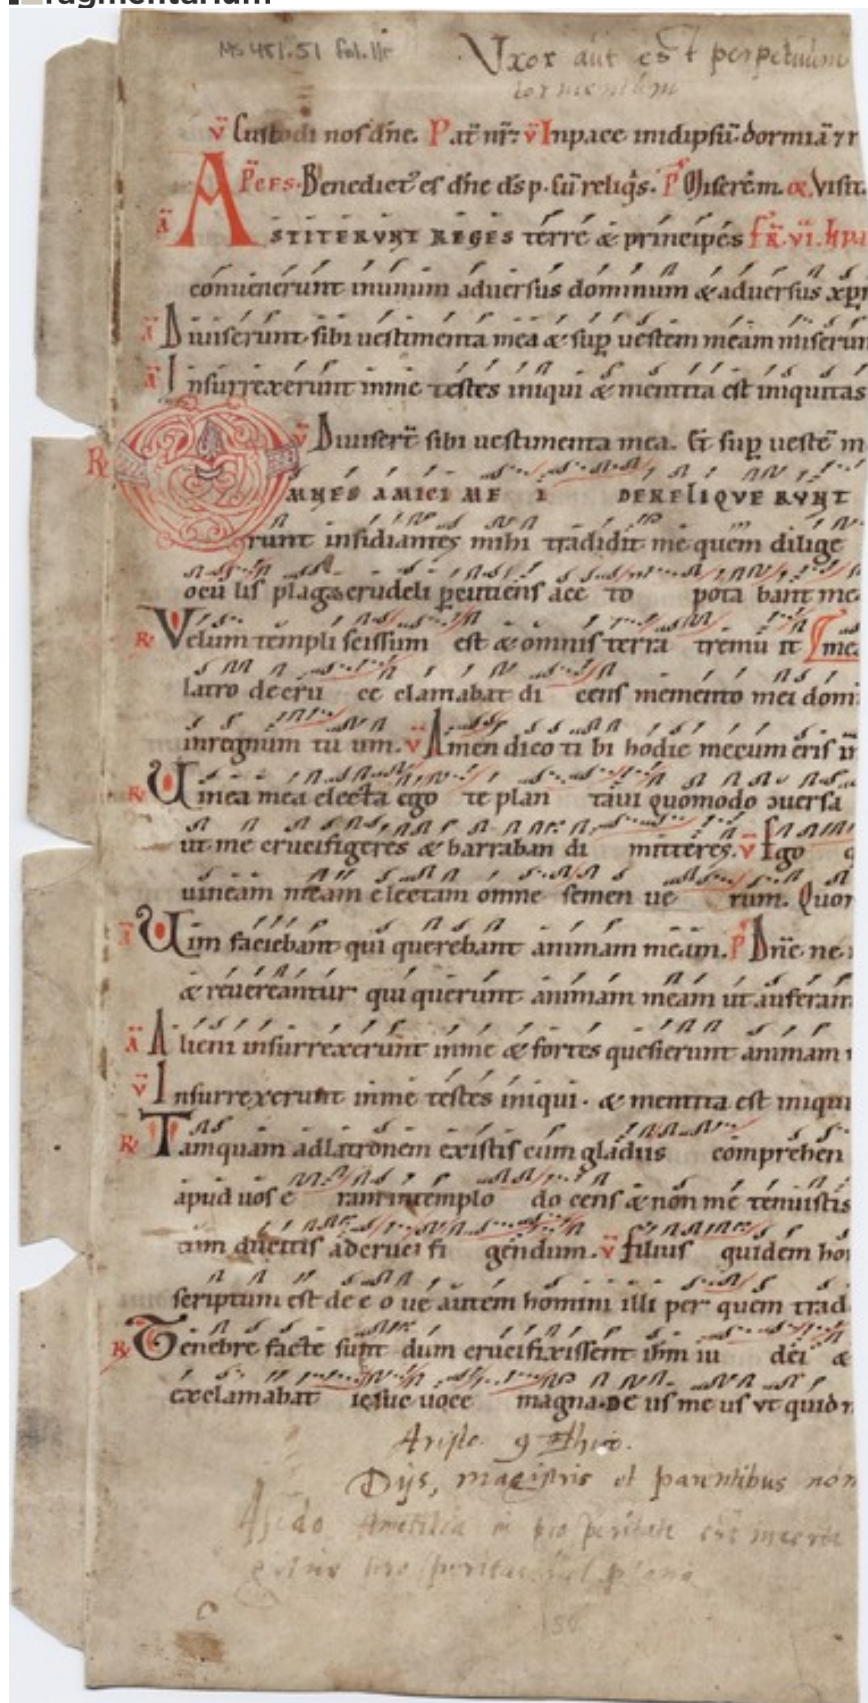 fragmentarium
Ms 481.51 fol. 11r
Uxor aut est perpetuum
tormentum
v̄ Custodi nos dn̄e. Pat̄ nr̄: v̄ Inpace inidipsū dormiā ⁊ r
P̄ces. Benedict᾽ es dn̄e ds̄ p. Miserēm. & Visit
ā ASTITERVNT REGES terrę & principes f̄r̄. vi.
convenerunt inunum adversus dominum & adversus xp̄
ā Diuiserunt sibi uestimenta mea & sup̱ uestem meam miserun
ā Insurrexerunt inme testes iniqui & mentita est iniquitas
v̄ Diuiser̄t sibi uestimenta mea. Et sup̱ uestē m
R̸ OMNES AMICI ME I DERELIQVE RVNT
runt insidiantes mihi tradidit me quem dilige
ocu lis plaga crudeli p̱cutiens ace to pota bant me
R̸ Velum templi scissum est & omnis terra tremu it
latro decru ce clamabat di cens memento mei domi
inregnum tu um. v̄ Amen dico ti bi hodie mecum eris in
R̸ Uinea mea electa ego te plan taui quomodo ɔuersa
ut me crucifigeres & barraban di mitteres. v̄ Ego q
uineam meam electam omne semen ue rum. Quom
ā Uim faciebant qui querebant animam meam. P̄ Dn̄e ne
& reuereantur qui querunt animam meam ut auferan
ā Alieni insurrexerunt inme & fortes quesierunt animam
v̄ Insurrexerunt inme testes iniqui. & mentita est iniqui
R̸ Tamquam adlatronem existis cum gladiis comprehen
apud uos e ram intemplo do cens & non me tenuistis
ducitis adcruci fi gendum. v̄ Filius quidem ho
scriptum est de e o ue autem homini illi per quem trad
R̸ Tenebre facte sunt dum crucifixissent ih̄m iu dei &
exclamabat iesus uoce magna. De us me us vt quid
Ariste. 9 Ethic.
Dijs, magistris et parentibus non